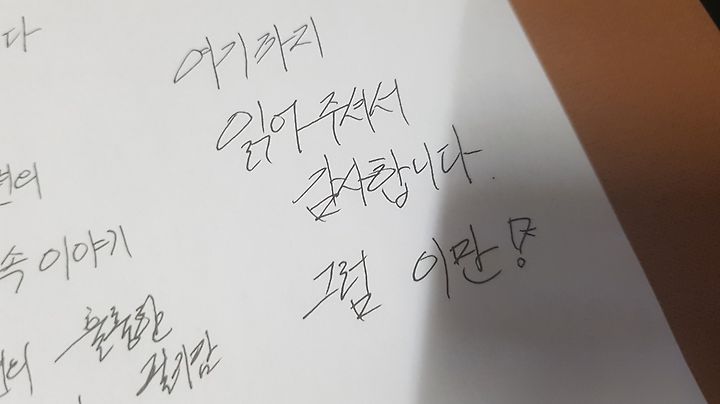 다
여기까지
읽어 주셔서
감사합니다.
그럼 이만!
속 이야기
훌륭한
필기감